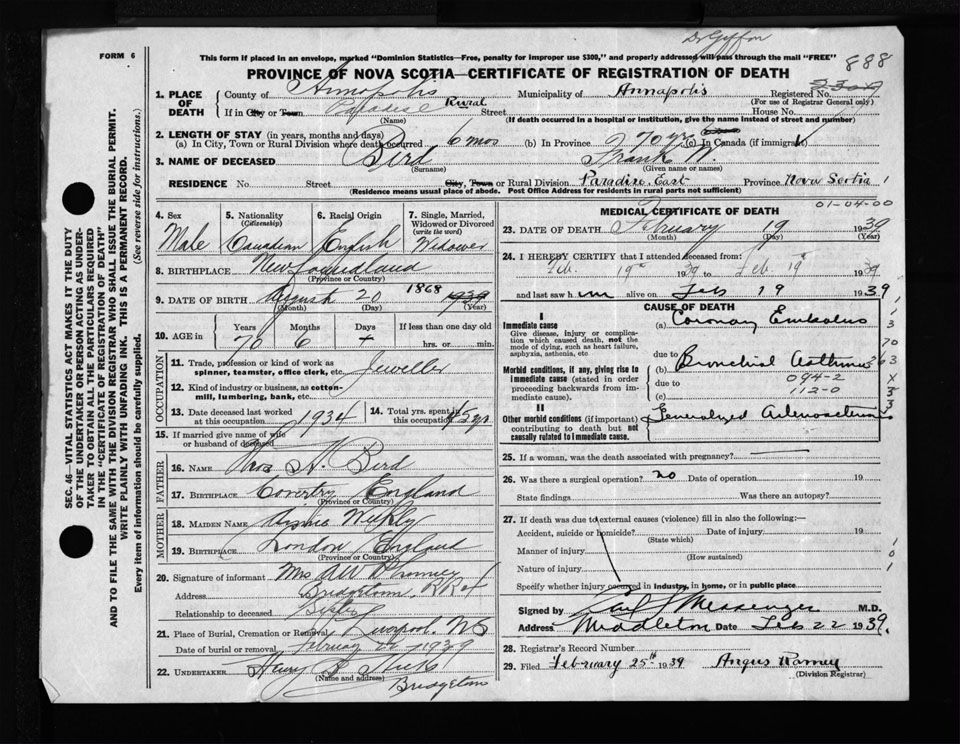 Dr Giffin
FORM 6
This form if placed in an envelope, marked "Dominion Statistics—Free, penalty for improper use $300," and properly addressed will pass through the mail "FREE"
888
PROVINCE OF NOVA SCOTIA—CERTIFICATE OF REGISTRATION OF DEATH
1. PLACE OF DEATH
County of Annapolis Municipality of Annapolis Registered No.
(For use of Registrar General only)
If in City or Town Paradise Rural Street House No.
(Name) (If death occurred in a hospital or institution, give the name instead of street and number)
2. LENGTH OF STAY (in years, months and days)
(a) In City, Town or Rural Division where death occurred 6 mos (b) In Province 70 yrs (c) In Canada (if immigrant)
3. NAME OF DECEASED Bird Frank W.
(Surname) (Given name or names)
RESIDENCE No. Street City, Town or Rural Division Paradise East Province Nova Scotia
(Residence means usual place of abode. Post Office Address for residents in rural parts not sufficient)
4. Sex Male
5. Nationality (Citizenship) Canadian
6. Racial Origin English
7. Single, Married, Widowed or Divorced (write the word) Widower
8. BIRTHPLACE Newfoundland
(Province or Country)
9. DATE OF BIRTH August 20 1868 1939
(Month) (Day) (Year)
10. AGE in Years 70 Months 6 Days If less than one day old hrs. or min.
OCCUPATION
11. Trade, profession or kind of work as spinner, teamster, office clerk, etc. Jeweller
12. Kind of industry or business, as cotton-mill, lumbering, bank, etc.
13. Date deceased last worked at this occupation 1934
14. Total yrs. spent in this occupation 45 yrs
15. If married give name of wife or husband of deceased
FATHER
16. NAME Thos A. Bird
17. BIRTHPLACE Coventry England
(Province or Country)
MOTHER
18. MAIDEN NAME
19. BIRTHPLACE London England
(Province or Country)
20. Signature of informant Mrs
Address Bridgetown RR
Relationship to deceased
21. Place of Burial, Cremation or Removal Liverpool NS
Date of burial or removal February 22 1939
22. UNDERTAKER Henry B Hicks
(Name and address)
Bridgetown
MEDICAL CERTIFICATE OF DEATH
01-04-00
23. DATE OF DEATH February 19 1939
(Month) (Day) (Year)
24. I HEREBY CERTIFY that I attended deceased from:
Feb. 19th 1939 to Feb 19th 1939
and last saw him alive on Feb 19 1939
CAUSE OF DEATH
I
Immediate cause
Give disease, injury or complication which caused death, not the mode of dying, such as heart failure, asphyxia, asthenia, etc
(a) Coronary Embolus
due to
Morbid conditions, if any, giving rise to immediate cause (stated in order proceeding backwards from immediate cause).
(b) Bronchial Asthma
due to
094-2
(c) 112-0
II
Other morbid conditions (if important) contributing to death but not causally related to immediate cause.
Generalized Arteriosclerosis
25. If a woman, was the death associated with pregnancy?
26. Was there a surgical operation? no Date of operation 19
State findings Was there an autopsy?
27. If death was due to external causes (violence) fill in also the following:—
Accident, suicide or homicide? Date of injury 19
(State which)
Manner of injury
(How sustained)
Nature of injury
Specify whether injury occurred in industry, in home, or in public place
Signed by Messenger M.D.
Address Middleton Date Feb 22 1939.
28. Registrar's Record Number
29. Filed February 25th 1939 Angus Ramey
(Division Registrar)
SEC. 46—VITAL STATISTICS ACT MAKES IT THE DUTY OF THE UNDERTAKER OR PERSON ACTING AS UNDERTAKER TO OBTAIN ALL THE PARTICULARS REQUIRED IN THE "CERTIFICATE OF REGISTRATION OF DEATH" AND TO FILE THE SAME WITH THE DIVISION REGISTRAR WHO SHALL ISSUE THE BURIAL PERMIT.
WRITE PLAINLY WITH UNFADING INK. THIS IS A PERMANENT RECORD.
Every item of information should be carefully supplied. (See reverse side for instructions.)